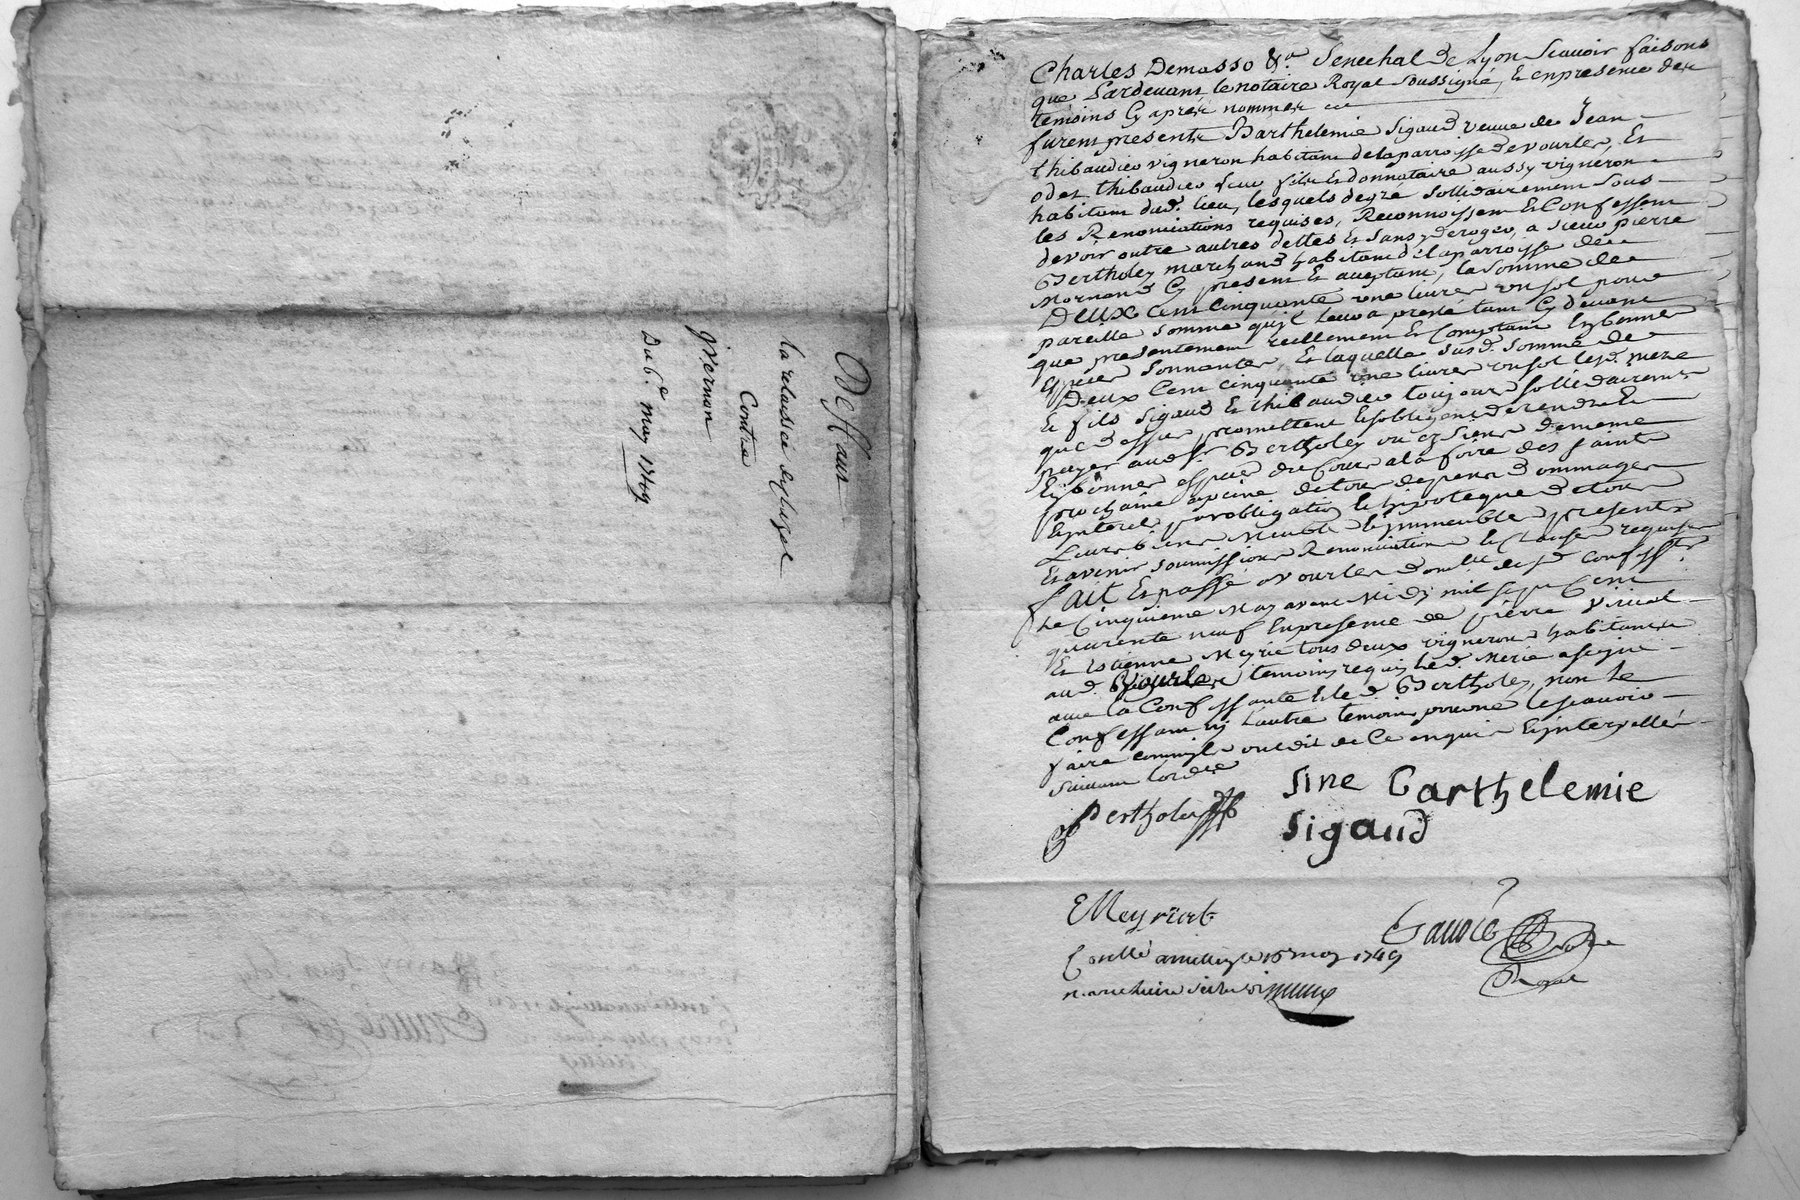 Deffaut
la relaissée
Contre
jvernon
Du 6e may 1749
Charles Demasso &a Senechal de Lyon Scavoir faisons
que Pardevant le notaire Royal soussigné, et en presence des
temoins Cy aprés nommes
furent presents Barthelemie Sigaud veuve de Jean
thibaudier vigneron habitant de la parroisse de vourles, Et
odet thibaudier leur fils et donnataire aussy vigneron
habitant dud. lieu, lesquels de gré sollidairement sous
les Renonciations requises, Reconnoissent et Confessent
devoir outre autres dettes et sans y deroger, a sieur pierre
Bertholey marchand habitant de la parroisse de
Mornand Cy present et aceptant, la somme de
Deux Cent Cinquante une livres un sol pour
pareille somme qu'il leur a presté tant Cy devant
que presentement reellement et Comptant En bonnes
Espices sonnantes, Et laquelle susd. somme de
Deux Cent cinquante une livres un sol lesd. mere
et fils Sigaud et thibaudier toujours sollidairement
que dessus promettent et s'obligent de rendre et
payer aud. Sr Bertholey ou es siens de meme
En bonnes espices du Cours a la foire des saints
prochaine a peine de tous depens dommages
Et interets par obligation et hipoteque de tous
Leurs biens Meubles et immeubles presents
Et avenir soumissions Renonciations et Clauses requises
fait Et passé a vourles domicile desd. Confessts
Le Cinquieme May avant Midy mil sept Cent
quarente neuf En presence de pierre
Et Estienne Meyrie tous deux vignerons habitants
aud. Vourles temoins requis led. Merie a signé
avec la Confessante et led. Bertholey, non le
Confessant ny l'autre temoin pour ne le scavoir
faire comme ils ont dit de Ce enquis et interpellés
suivant l'ordce
Bertholey
sine Barthelemie
sigaud
E Meyrieb
Gavoié
Conlle a millery le 15 may 1749
Royal